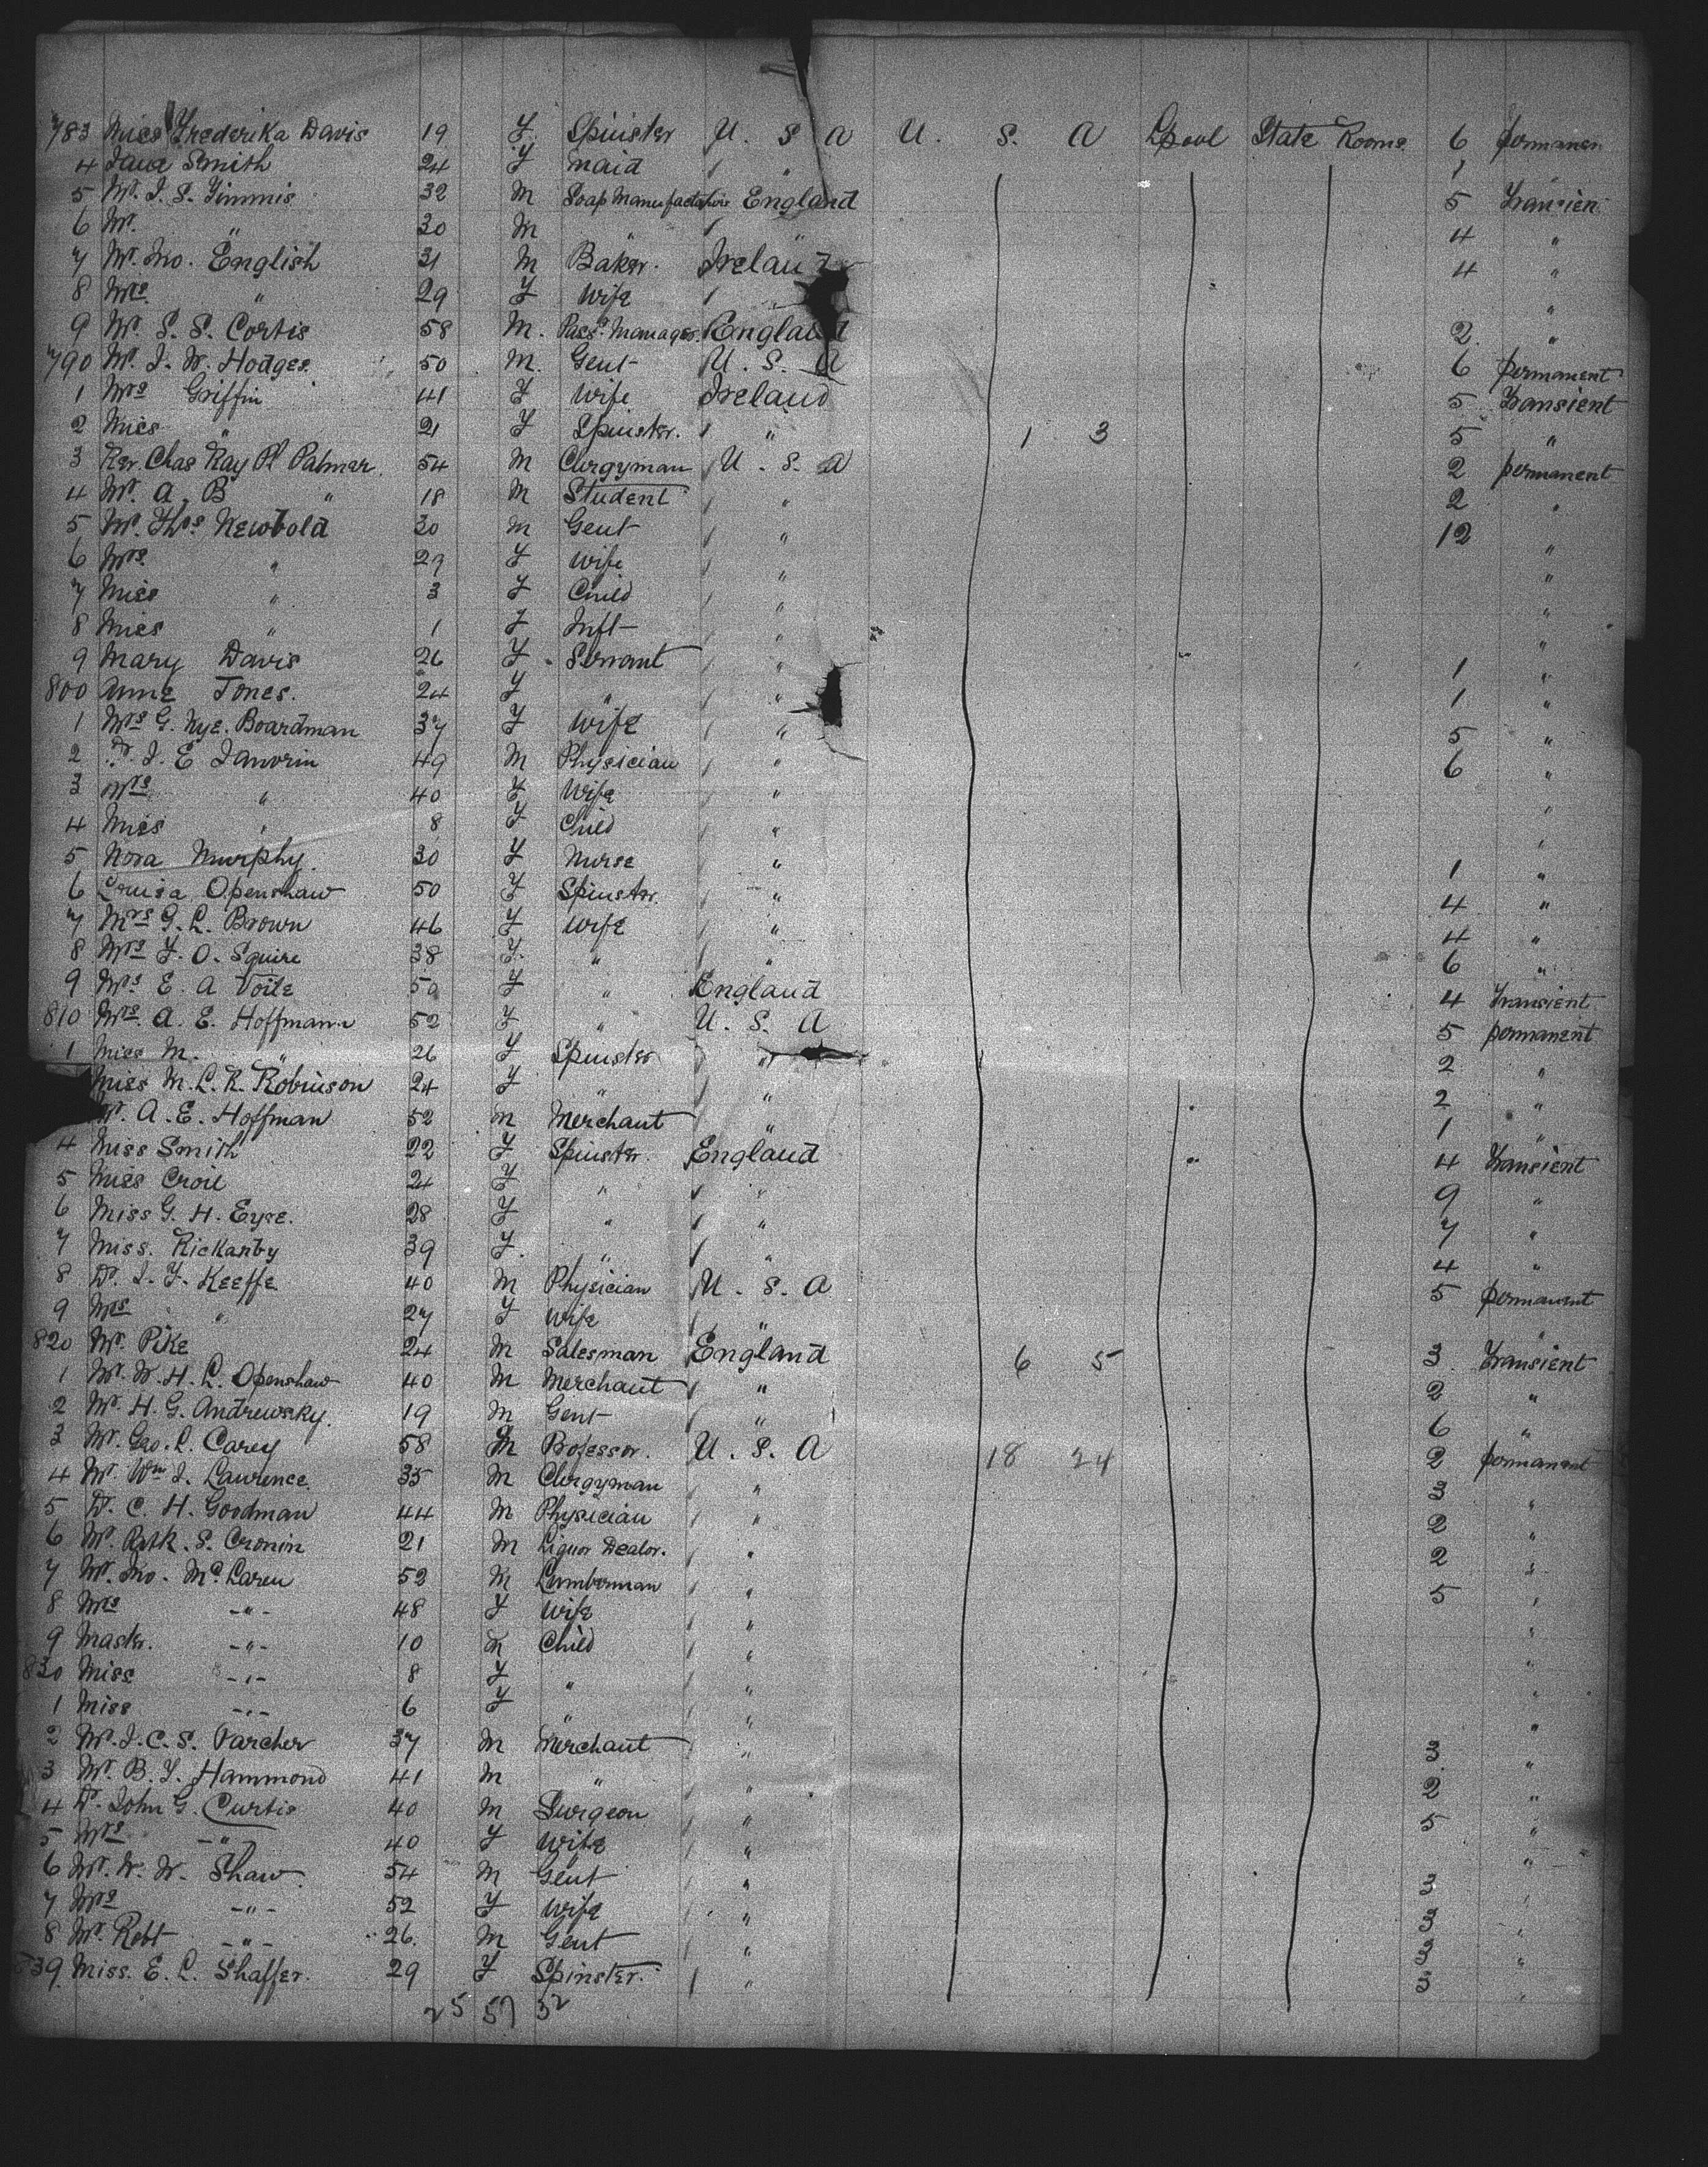 783 Miss Frederika Davis 19 F Spinster U. S. A U. S. A Lpool State Rooms 6 permanen
4 Smith 24 F maid " 1 "
5 Mr. J. S. Timmis 32 M Soap Manufacture England 5 Transien
6 Mr. " 30 M " " 4 "
7 Mr. Jno. English 31 M Baker. Ireland 4 "
8 Mrs. " 29 F Wife " "
9 Mr. S. S. Cortis 58 M. Pass. Manager. England 2. "
790 Mr. J. W. Hodges. 50 M. Gent U. S. A 6 permanent
1 Mrs Griffin 41 F Wife Ireland 5 Transient
2 Miss " 21 F Spinster. " 1 3 5 "
3 Rev. Chas Ray Palmer. 54 M Clergyman U. S. A 2 permanent
4 Mr. A. B " 18 M Student " 2 "
5 Mr. Thos Newbold 30 M Gent " 12 "
6 Mrs. " 29 F Wife " "
7 Miss " 3 F Child " "
8 Miss " 1 F Inft " "
9 Mary Davis 26 F Servant " 1 "
800 Anne Jones. 24 F " " 1 "
1 Mrs G. Nye. Boardman 37 F Wife " 5 "
2 Dr. J. E Janvrin 49 M Physician " 6 "
3 Mrs " 40 F Wife " "
4 Miss " 8 F Child " "
5 Nora Murphy. 30 F Nurse " 1 "
6 Louisa Openshaw 50 F Spinster. " 4 "
7 Mrs G. L. Brown 46 F Wife " 4 "
8 Mrs F. O. Squire 38 F. " " 6 "
9 Mrs E. A 50 F " England 4 Transient
810 Mrs. A. E. Hoffman 52 F " U. S. A 5 permanent
1 Miss M. " 26 F Spinster " 2 "
Miss M. L. R. Robinson 24 F " " 2 "
Mr. A. E. Hoffman 52 M Merchant " 1 "
4 Miss Smith 22 F Spinster. England 4 Transient
5 Miss Croil 24 F " " 9 "
6 Miss G. H. Eyre. 28 F " " 7 "
7 Miss. Rickarby 39 F. " " 4 "
8 Dr. J. F. Keeffe 40 M Physician U. S. A 5 permanent
9 Mrs " 27 F Wife " "
820 Mr. Pike 24 M Salesman England 6 5 3 Transient
1 Mr. W. H. L. Openshaw 40 M Merchant " 2 "
2 Mr. H. G. Andrewsky. 19 M Gent " 6 "
3 Mr. Geo. L. Carey 58 M Professor. U. S. A 18 24 2 permanent
4 Mr. Wm J. Lawrence. 35 M Clergyman " 3 "
5 Dr. C. H. Goodman 44 M Physician " 2 "
6 Mr. Patk. S. Cronin 21 M Liquor Dealer. " 2 "
7 Mr. Jno. McLaren 52 M Lumberman " 5 "
8 Mrs -"- 48 F Wife " "
9 Master. -"- 10 M Child " "
830 Miss -"- 8 F " " "
1 Miss -"- 6 F " " "
2 Mr. J. C. S. Varcher 37 M Merchant " 3 "
3 Mr. B. F. Hammond 41 M " " 2 "
4 Dr. John G. Curtis 40 M Surgeon " 5 "
5 Mrs -"- 40 F Wife " "
6 Mr. W. W. Shaw 54 M Gent " 3 "
7 Mrs -"- 52 F Wife " 3 "
8 Mr. Robt -"- 26. M Gent " 3 "
839. Miss. E. L. Shaffer. 29 F Spinster. " 3 "
25 57 32